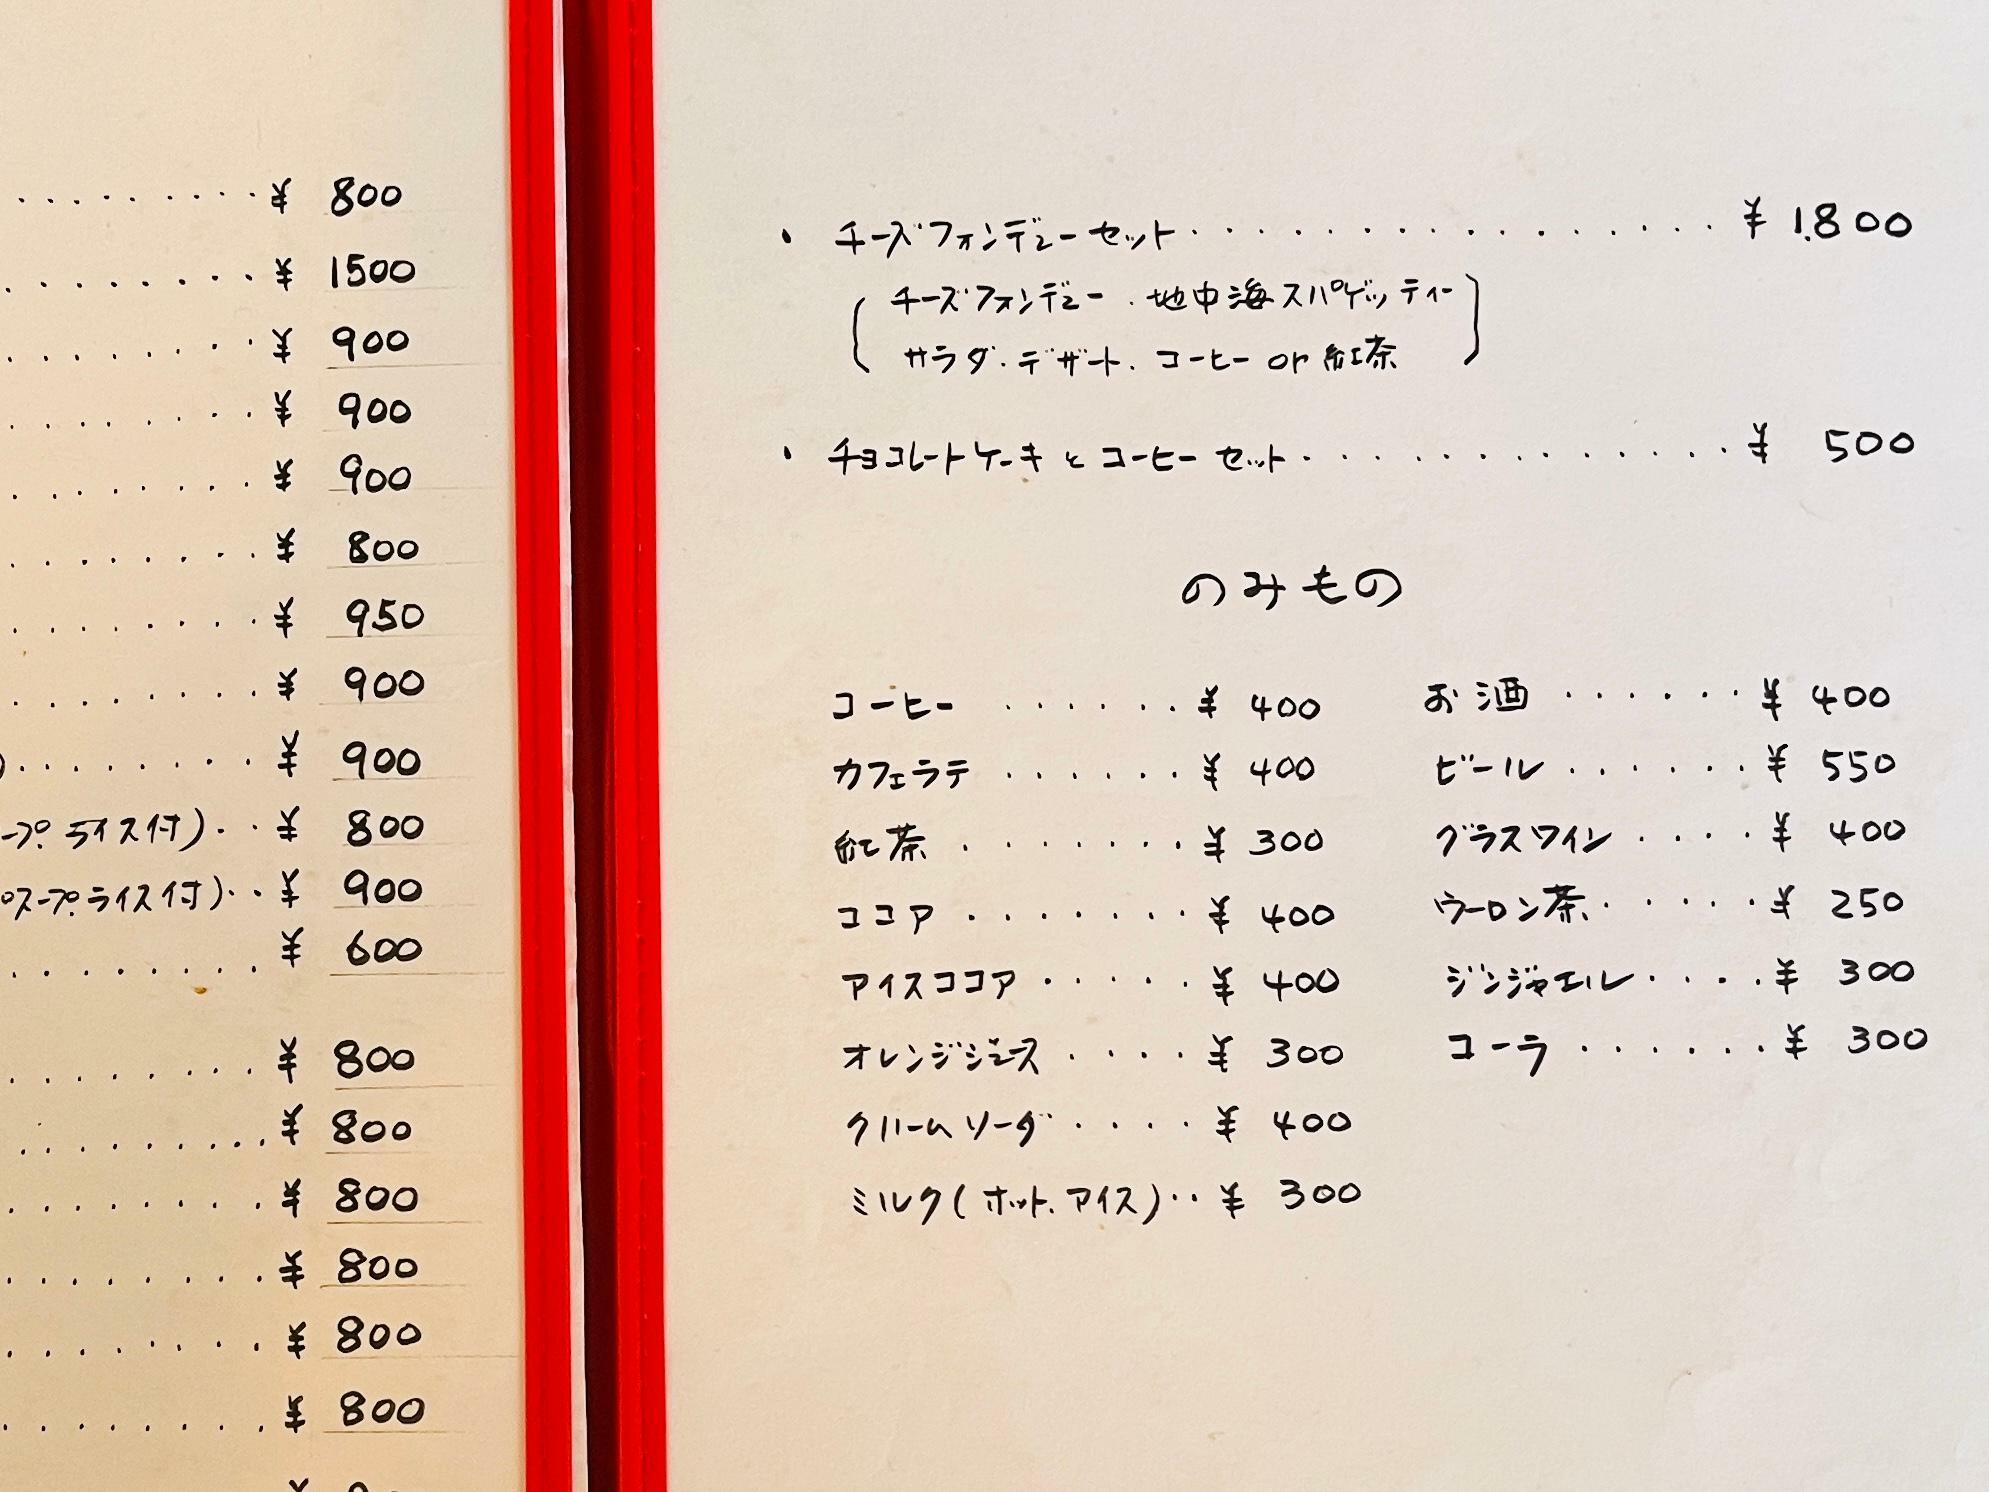 ・・・・・・・・・¥ 800
・・・・・・・・¥ 1500
・・・・・・・・¥ 900
・・・・・・・・¥ 900
・・・・・・・・¥ 900
・・・・・・・・¥ 800
・・・・・・・・¥ 950
・・・・・・・・¥ 900
)・・・・・・・・¥ 900
ープ ライス付)・・¥ 800
スープライス付)・・¥ 900
・・・・・・・・¥ 600
・・・・・・・・¥ 800
・・・・・・・・¥ 800
・・・・・・・・¥ 800
・・・・・・・・¥ 800
・・・・・・・・¥ 800
・・・・・・・・¥ 800
・チーズフォンデューセット・・・・・・・・・・・・・・・¥ 1.800
(チーズフォンデュー.地中海スパゲッティー
サラダ.デザート.コーヒー or 紅茶)
・チョコレートケーキとコーヒーセット・・・・・・・・・・・・¥ 500
のみもの
コーヒー ・・・・・・¥ 400
カフェラテ ・・・・・・¥ 400
紅茶 ・・・・・・・¥ 300
ココア ・・・・・・・¥ 400
アイスココア ・・・・・¥ 400
オレンジジュース ・・・・¥ 300
クリームソーダ ・・・・¥ 400
ミルク(ホット.アイス)・・¥ 300
お酒 ・・・・・・¥ 400
ビール ・・・・・・¥ 550
グラスワイン ・・・・¥ 400
ウーロン茶・・・・・¥ 250
ジンジャエール・・・・¥ 300
コーラ ・・・・・・¥ 300